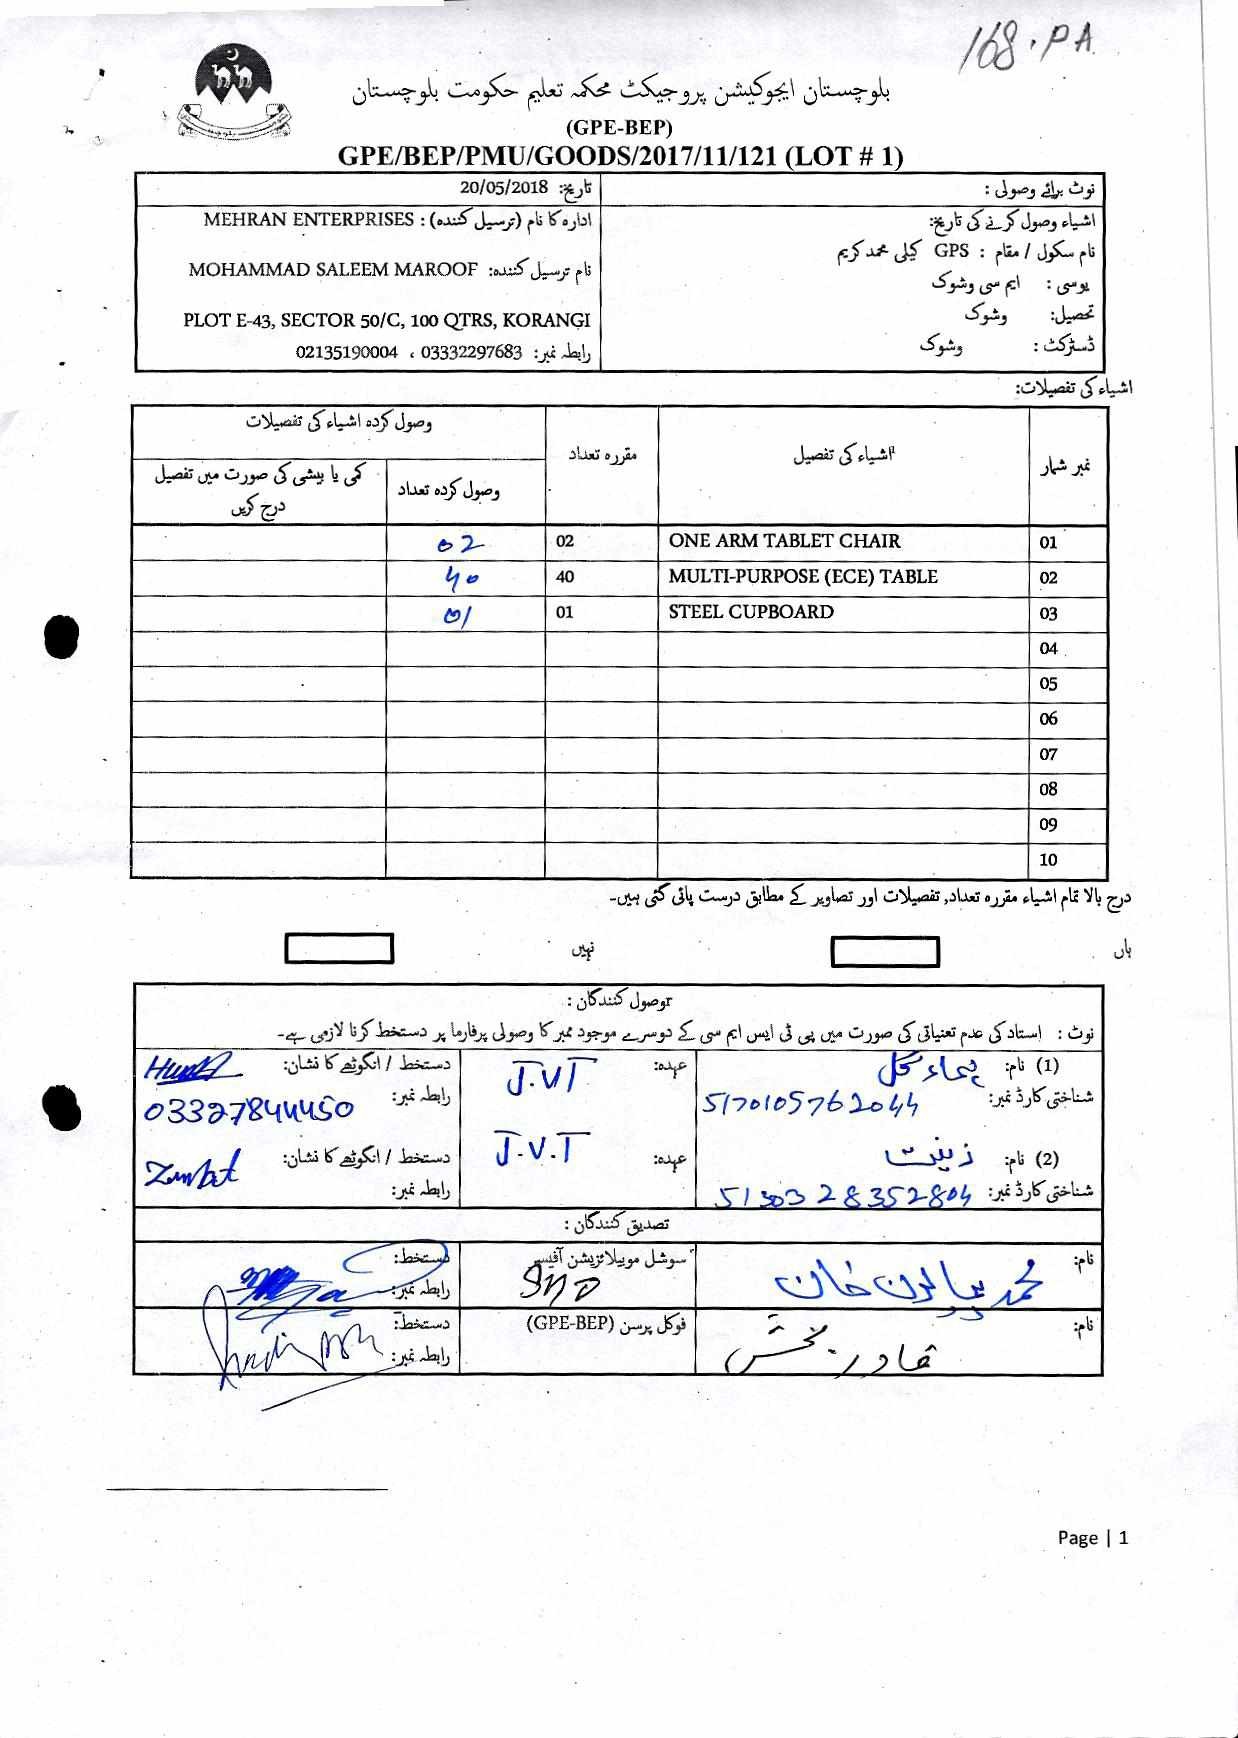 168.PA
بلوچستان ایجوکیشن پروجیکٹ محکمہ تعلیم حکومت بلوچستان
(GPE-BEP)
GPE/BEP/PMU/GOODS/2017/11/121 (LOT # 1)
نوٹ برائے وصولی :
تاریخ: 20/05/2018
اشیاء وصول کرنے کی تاریخ:
نام سکول / مقام : GPS کیلی محمد کریم
یوسی : ایم سی وشوک
تحصیل: وشوک
ڈسٹرکٹ : وشوک
ادارہ کا نام (ترسیل کنندہ) : MEHRAN ENTERPRISES
نام ترسیل کنندہ: MOHAMMAD SALEEM MAROOF
PLOT E-43, SECTOR 50/C, 100 QTRS, KORANGI
رابطہ نمبر: 03332297683 ، 02135190004
اشیاء کی تفصیلات:
نمبر شمار اشیاء کی تفصیل مقررہ تعداد وصول کردہ اشیاء کی تفصیلات
وصول کردہ تعداد کمی یا بیشی کی صورت میں تفصیل درج کریں
01 ONE ARM TABLET CHAIR 02 02
02 MULTI-PURPOSE (ECE) TABLE 40 40
03 STEEL CUPBOARD 01 01
04
05
06
07
08
09
10
درج بالا تمام اشیاء مقررہ تعداد, تفصیلات اور تصاویر کے مطابق درست پائی گئی ہیں۔
ہاں نہیں
وصول کنندگان :
نوٹ : استاد کی عدم تعیناتی کی صورت میں پی ٹی ایس ایم سی کے دوسرے موجود ممبر کا وصولی پرفارما پر دستخط کرنا لازمی ہے۔
(1) نام: گل عہدہ: J.V.T دستخط / انگوٹھے کا نشان:
شناختی کارڈ نمبر: 5170105762044 رابطہ نمبر: 03327844450
(2) نام: زینت عہدہ: J.V.T دستخط / انگوٹھے کا نشان:
شناختی کارڈ نمبر: 5130328352804 رابطہ نمبر:
تصدیق کنندگان :
نام: محمد خان سوشل موبیلائزیشن آفیسر دستخط:
رابطہ نمبر:
نام: قادر بخش فوکل پرسن (GPE-BEP) دستخط:
رابطہ نمبر:
Page | 1